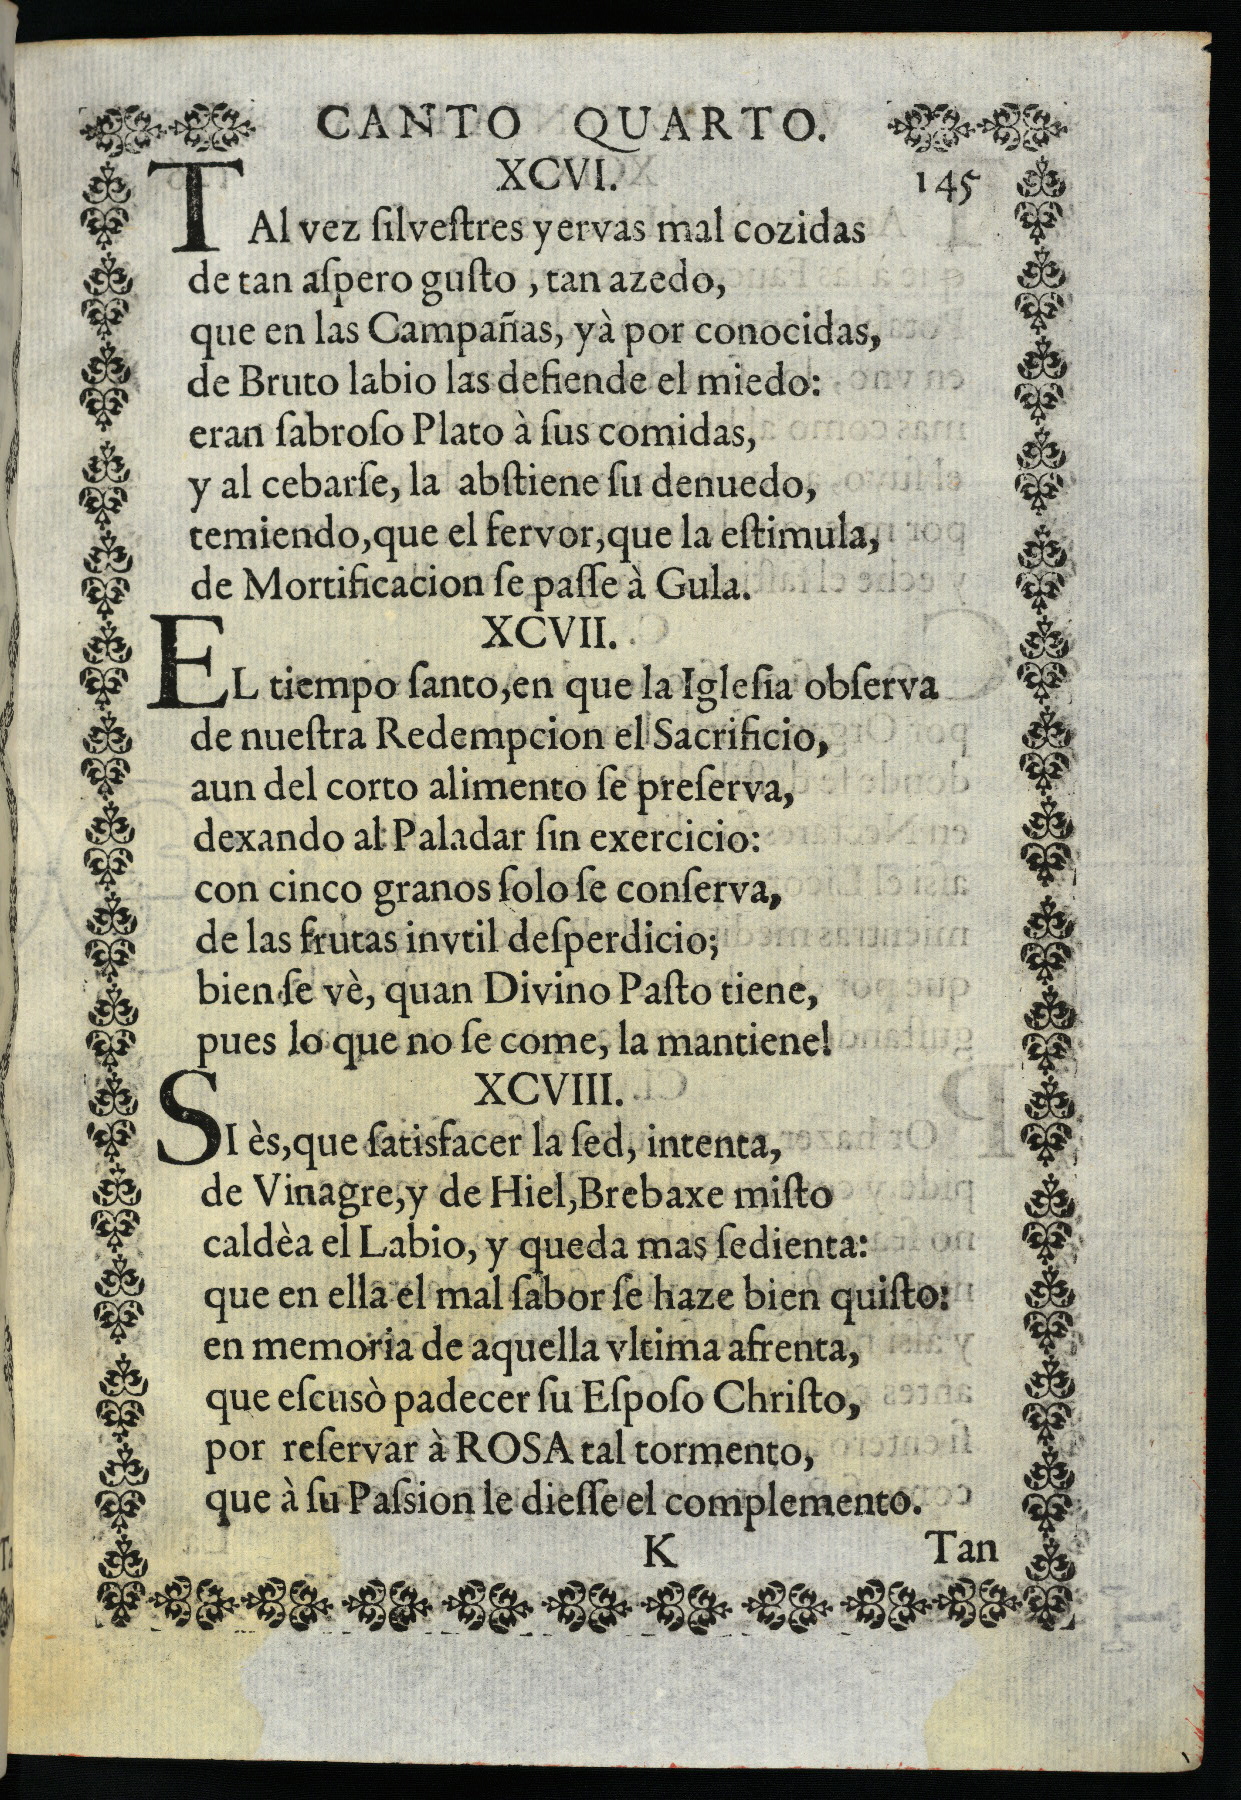 CANTO QUARTO.
XCVI.
145
TAl vez ſilveſtres yervas mal cozidas
de tan aſpero guſto , tan azedo,
que en las Campañas, yà por conocidas,
de Bruto labio las defiende el miedo:
eran ſabroſo Plato à ſus comidas,
y al cebarſe, la abſtiene ſu denuedo,
temiendo,que el fervor,que la eſtimula,
de Mortificacion ſe paſſe à Gula.
XCVII.
EL tiempo ſanto,en que la Igleſia obſerva
de nueſtra Redempcion el Sacrificio,
aun del corto alimento ſe preſerva,
dexando al Paladar ſin exercicio:
con cinco granos ſolo ſe conſerva,
de las frutas invtil deſperdicio;
bien ſe vè, quan Divino Paſto tiene,
pues lo que no ſe come, la mantiene!
XCVIII.
SI ès,que ſatisfacer la ſed, intenta,
de Vinagre,y de Hiel,Brebaxe miſto
caldèa el Labio, y queda mas ſedienta:
que en ella el mal ſabor ſe haze bien quiſto:
en memoria de aquella vltima afrenta,
que eſcusò padecer ſu Eſpoſo Chriſto,
por reſervar à ROSA tal tormento,
que à ſu Paſsion le dieſſe el complemento.
K
Tan